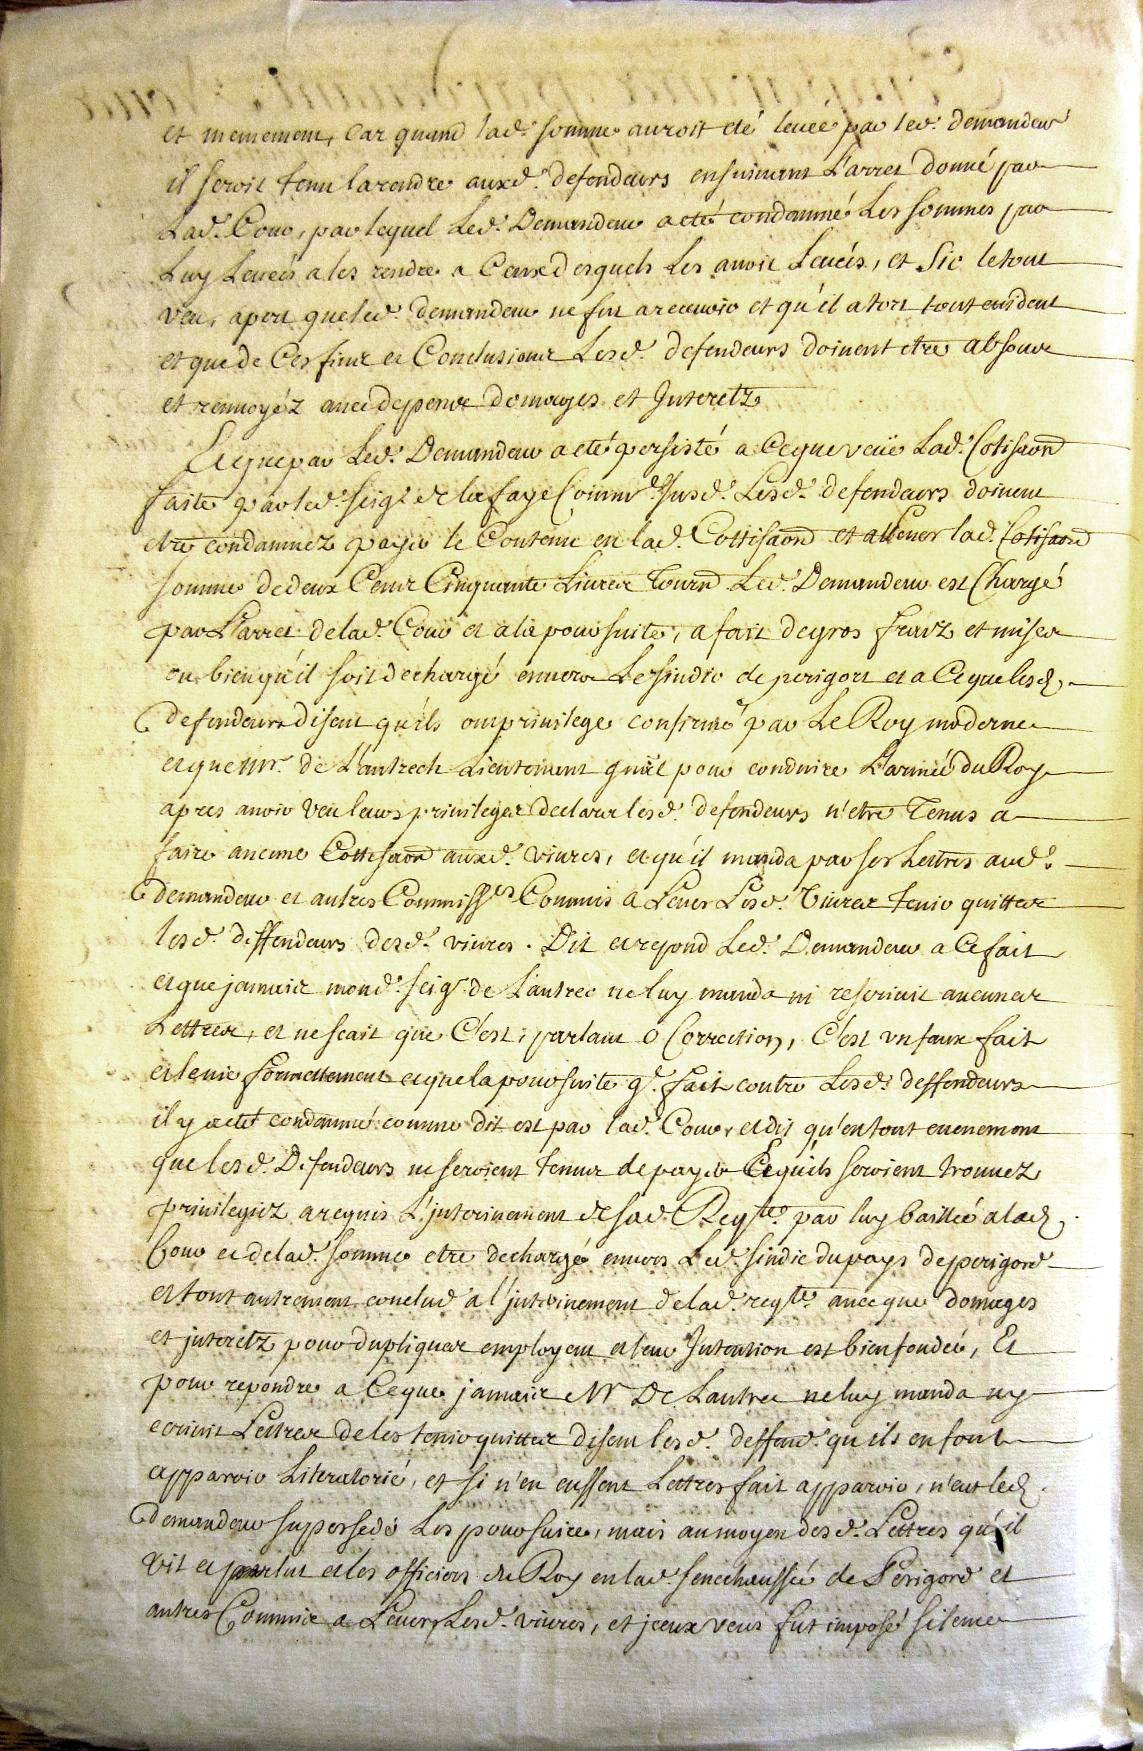 et memement, Car quand lad. somme auroit eté levée par led. demandeur
il seroit tenu la rendre auxd. defendeurs ensuivant L'arret donné par
Lad. Cour, par lequel Led. Demandeur a eté condamné Les sommes par
Luy Levées a les rendre a Ceux desquels Les avoit Levées, et Sic le tout
veu, apert que led. demandeur ne fut a recevoir et qu'il a tort tout evident
et que de Ces fins et Conclusions Lesd. defendeurs doivent etre absous
et renvoyéz avec depens domages et Interetz
Et que par Led. Demandeur a eté persisté a Ce que veüe Lad. Cotisaon
faite par led. seigr. de la faye Commre. susd. Lesd. defendeurs doivent
etre condamnez payer le Contenu en lad. Cottisaon et a Lever lad. Cotisaon
somme de deux Cens Cinquante Livres Tourn Led. Demandeur est Chargé
par L'arret de lad. Cour et a la poursuite, a fait de gros fraix et mises
ou bien qu'il soit dechargé envers Le sindic de perigort et a Ce que lesd.
defendeurs disent qu'ils ont privilege confirmé par Le Roy moderne
et que mr. de L'autrech Lieutenant gnal pour conduire L'armée du Roy
apres avoir veu leurs privileges declara lesd. defendeurs n'etre Tenus a
faire aucune Cottisaon auxd. vivres, et qu'il manda par ses Lettres aud.
demandeur et autres Commissres Commis a Lever Lesd. vivres tenir quittes
lesd. deffendeurs desd. vivres. Dit et repond Led. Demandeur a Ce fait
et que jamais mond. seigr. de L'autrec ne luy manda ni rescrivit aucunes
Lettres, et ne scait que C'est; parlant o Correction, C'est un faux fait
et le nie formellement et que la poursuite q. fait contre Lesd. deffendeurs
il y a eté condamné comme dit est par lad. Cour, et dit qu'en tout evenement
que lesd. Defendeurs ne seroient tenus de payer Ce qu'ils seroient trouvez
privilegiez a requis L'interinement de sad. Reqte. par luy baillée a lad.
Cour et de lad. somme etre dechargé envers Led. sindic du pays de perigord
et tout autrement conclud a l'interinement de lad. reqte. avec que domages
et interetz pour dupliques employent et leur Intention est bien fondée, Et
pour repondre a Ce que jamais Mr. De Lautrec ne luy manda ny
ecrivit Lettres de les tenir quittes disent lesd. deffend. qu'ils en font
apparoir Literatorié, et si n'en eussent Lettres fait apparoir, n'eut led.
demandeur supersedé Les poursuites, mais au moyen desd. Lettres qu'il
vit et par lut et les officiers du Roy en lad. senechaussée de Perigord et
autres Commis a Lever Lesd. vivres, et iceux veus fut imposé silence